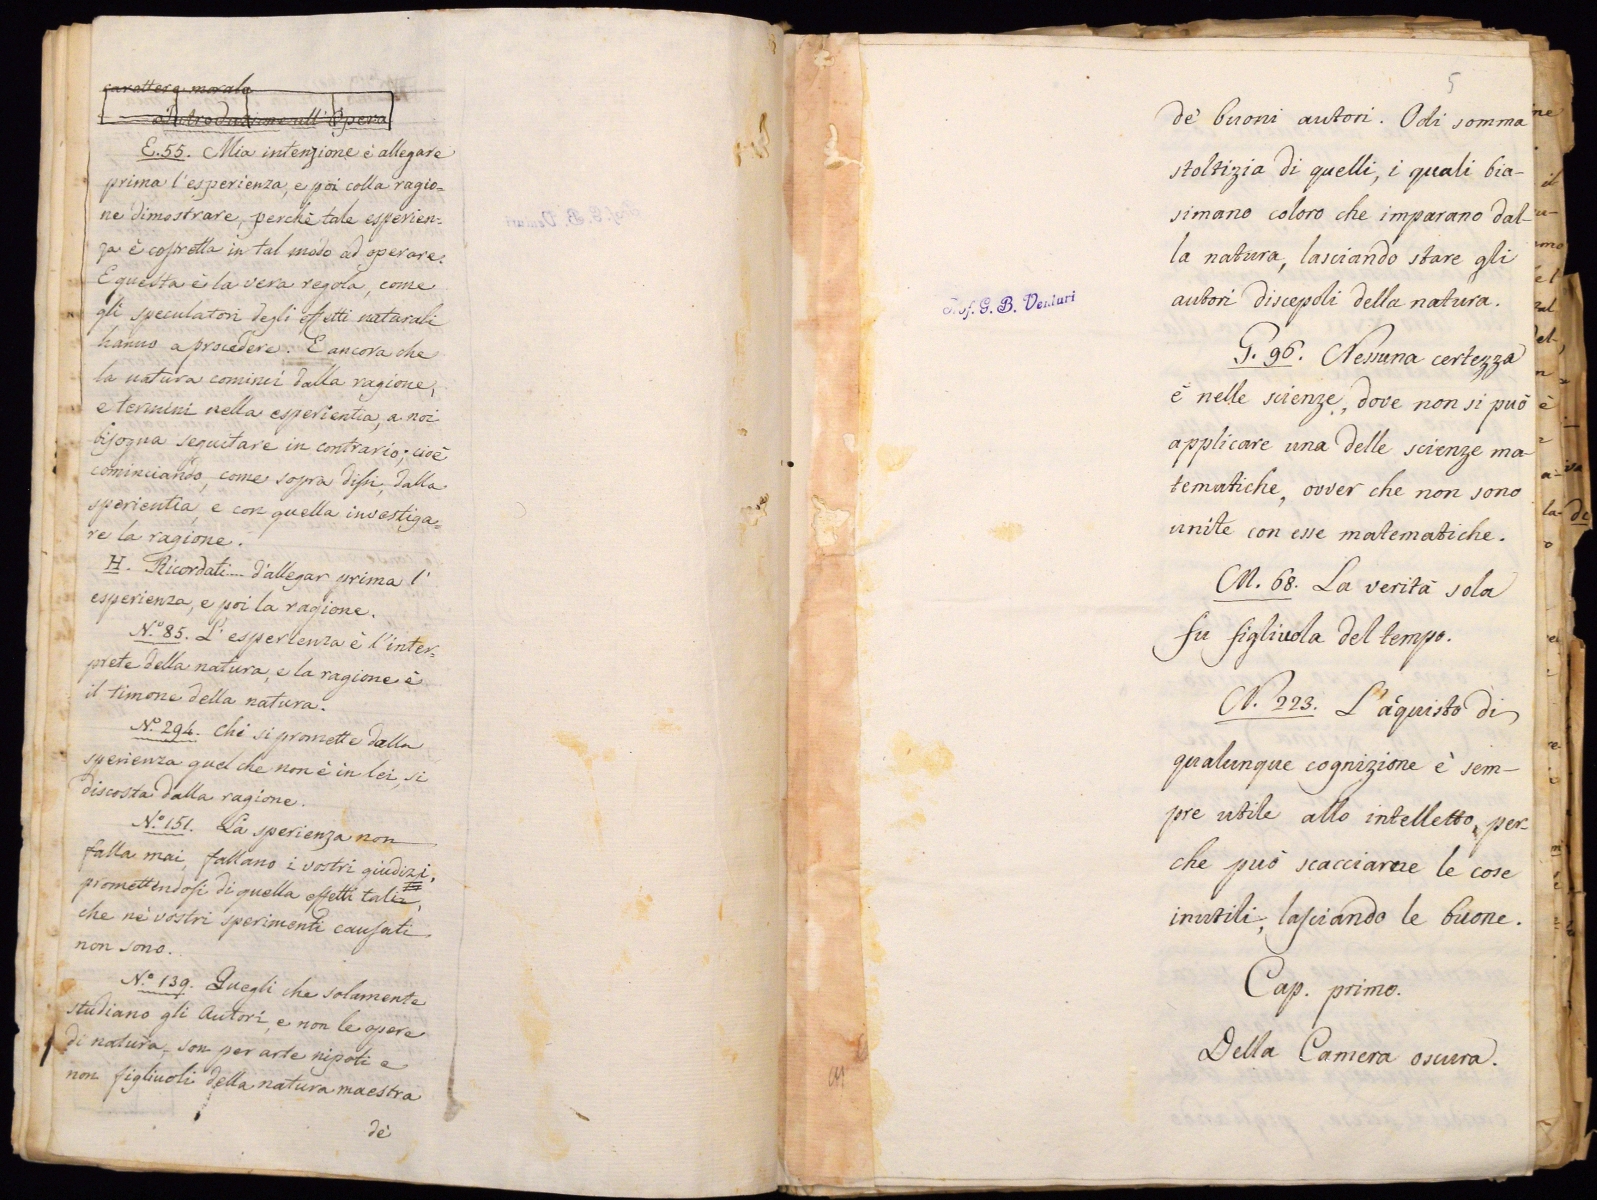 carattere morale
Introduzione all'Opera
E. 55. Mia intenzione è allegare
prima l'esperienza, e poi colla ragio=
ne dimostrare, perchè tale esperien=
za è costretta in tal modo ad operare.
E questa è la vera regola, come
gli speculatori degli effetti naturali
hanno a procedere. E ancora che
la natura cominci dalla ragione,
e termini nella esperientia, a noi
bisogna seguitare in contrario; cioè
cominciando, come sopra dissi, dalla
sperientia, e con quella investiga=
re la ragione.
H. Ricordati.... d'allegar prima l'
esperienza, e poi la ragione.
N.º 85. L'esperienza è l'inter=
prete della natura, e la ragione è
il timone della natura.
N.º 294. Chi si promette dalla
sperienza quel che non è in lei, si
discosta dalla ragione.
N.º 151. La sperienza non
falla mai, fallano i vostri giudizi,
promettendosi di quella effetti tali,
che ne' vostri sperimenti causati
non sono.
N.º 139. Quegli che solamente
studiano gli Autori, e non le opere
di natura, son per arte nipoti e
non figliuoli della natura maestra
de'
5
de' buoni autori. Odi somma
stoltizia di quelli, i quali bia-
simano coloro che imparano dal-
la natura, lasciando stare gli
autori discepoli della natura.
Prof. G. B. Venturi
G. 96. Nessuna certezza
è nelle scienze, dove non si può
applicare una delle scienze ma-
tematiche, ovver che non sono
unite con esse matematiche.
M. 68. La verità sola
fu figliuola del tempo.
N. 223. L'aquisto di
qualunque cognizione è sem-
pre utile allo intelletto, per-
che può scacciarne le cose
inutili, lasciando le buone.
Cap. primo.
Della Camera oscura.